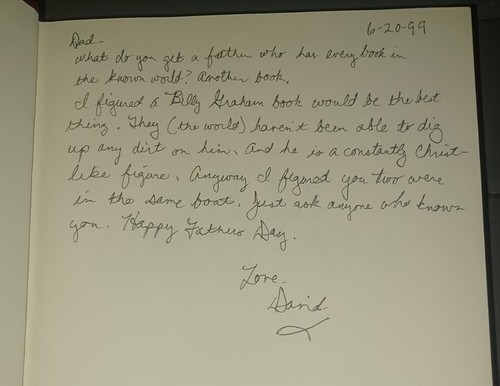 6-20-99
Dad-
What do you get a father who has every book in
the known world? Another book.
I figured a Billy Graham book would be the best
thing. They (the world) haven't been able to dig
up any dirt on him. And he is a constantly Christ-
like figure. Anyway I figured you two were
in the same boat. Just ask anyone who knows
you. Happy Fathers Day.
Love-
David